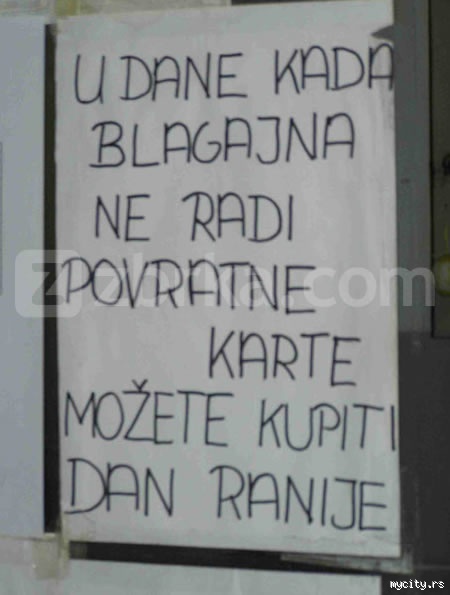 U DANE KADA
BLAGAJNA
NE RADI
POVRATNE
KARTE
MOŽETE KUPITI
DAN RANIJE
zbrka.com
mycity.rs